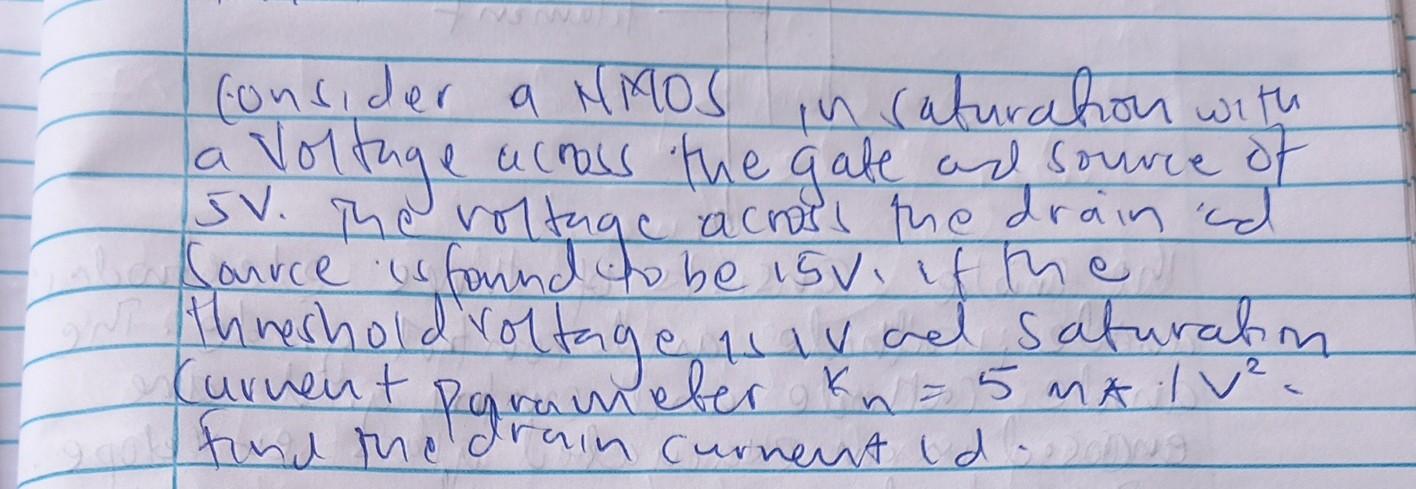 Consider a NMOS in saturation with
a Voltage across the gate and source of
5V. The voltage across the drain and
Source is found to be 15V. if the
threshold voltage is 1V and saturation
Current parameter Kn = 5 mA/V².
find the drain current id.